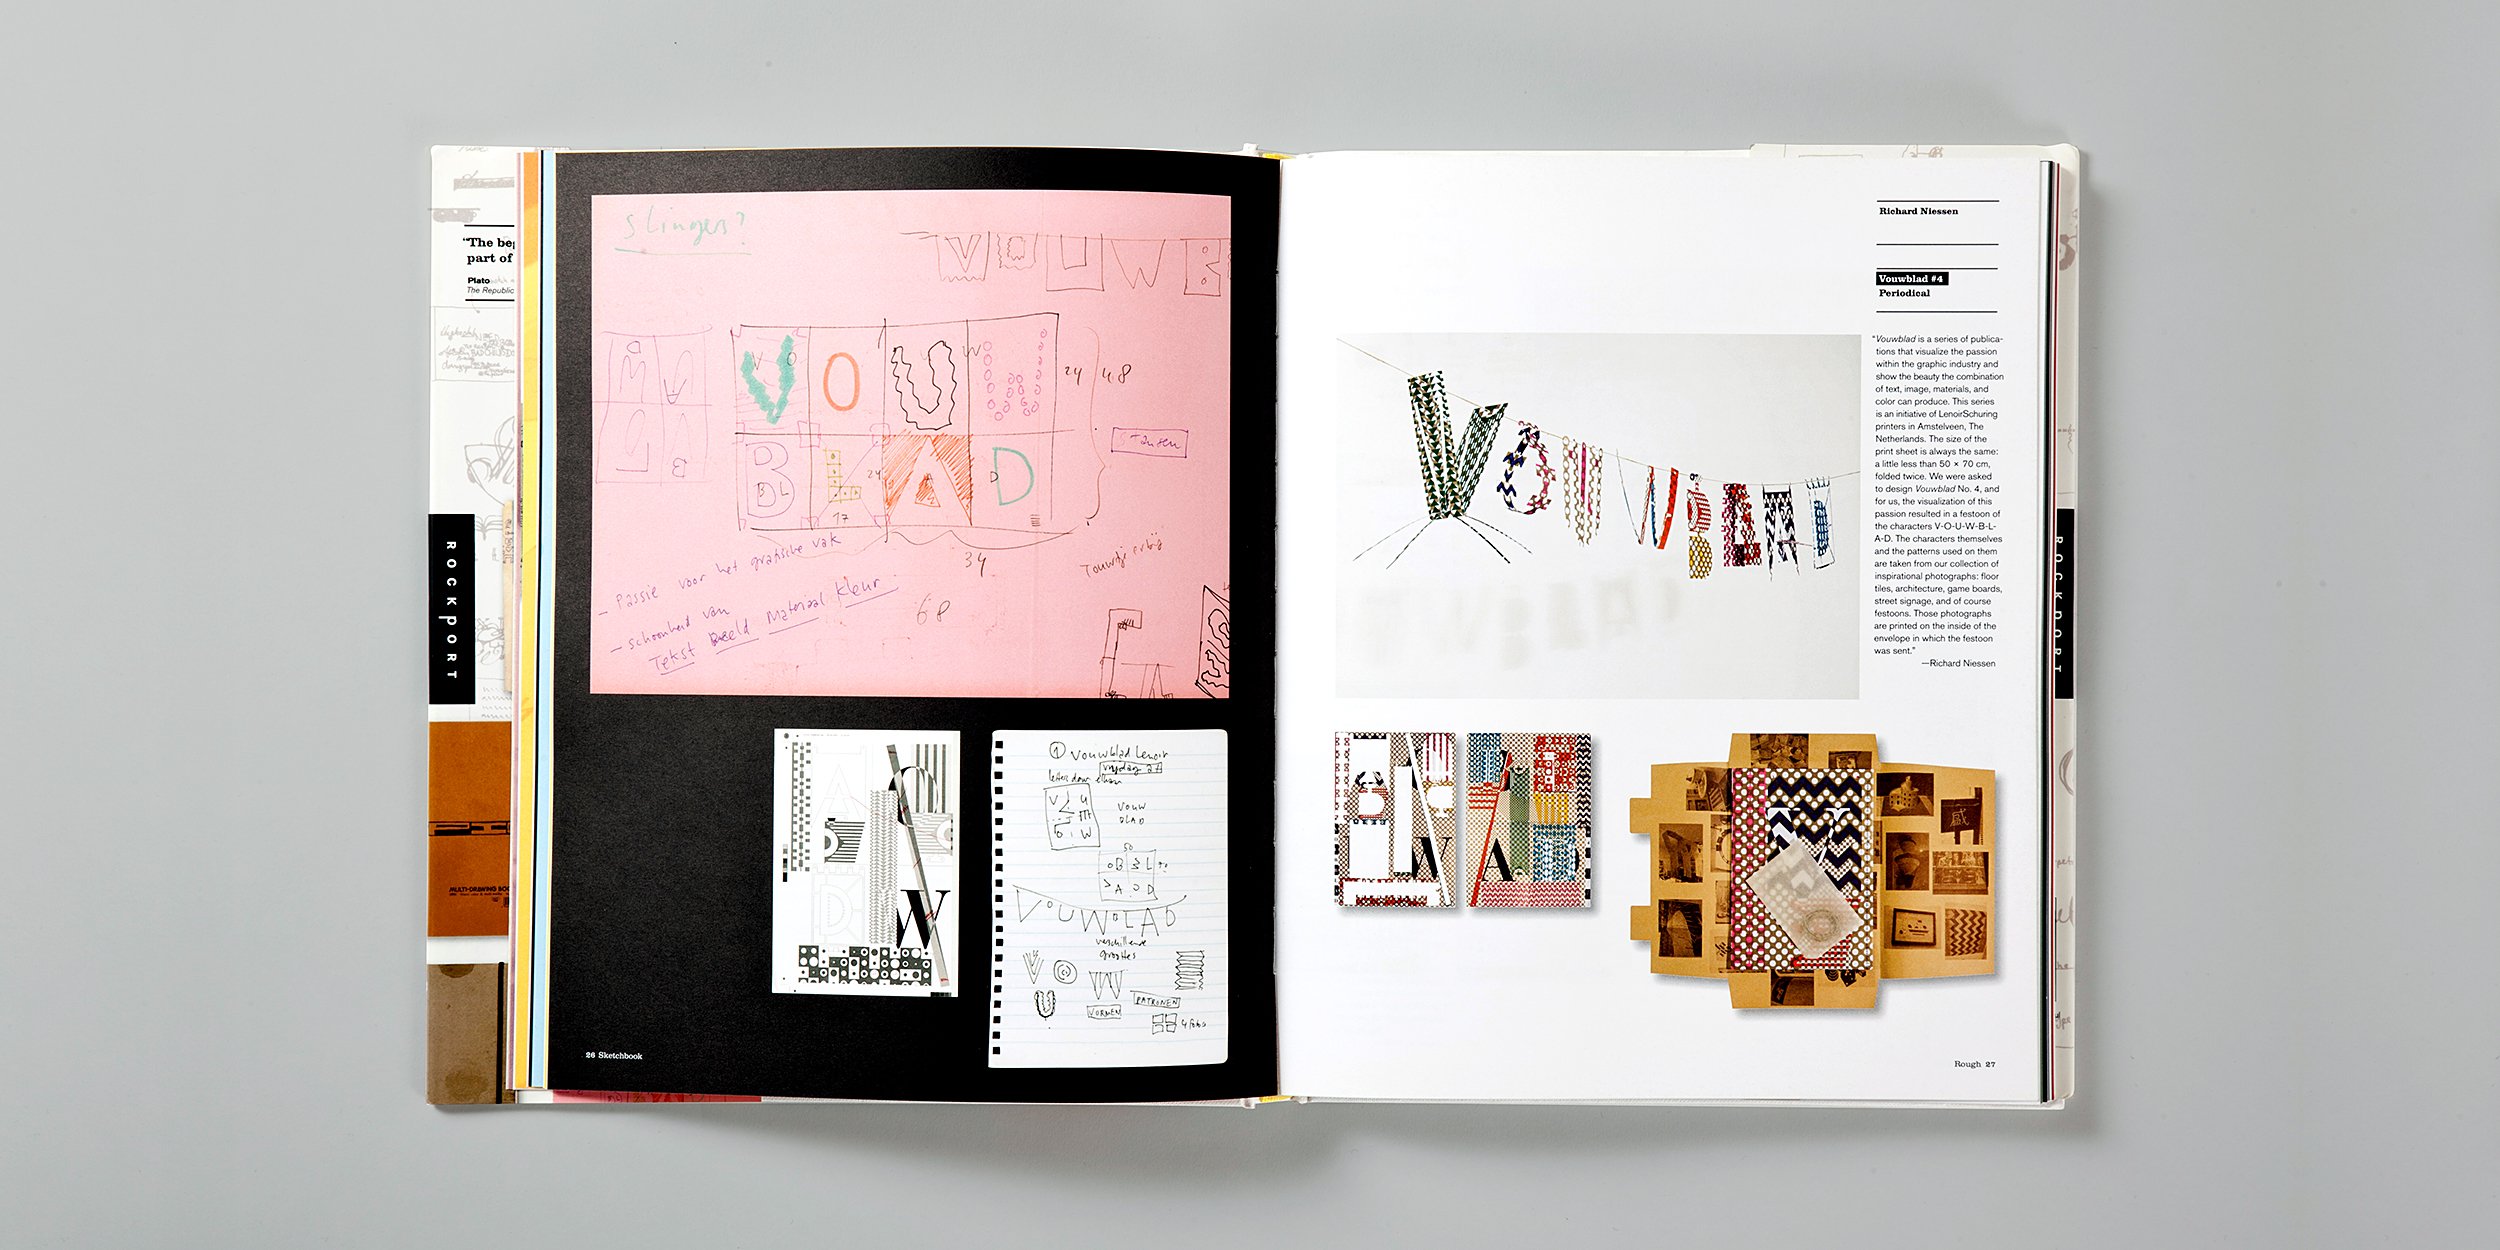 "The be
part of
Plato
The Republic
ROCKPORT
MULTI-DRAWING BOO
Slingers?
VOUWB
VOUW
BLAD
24
48
24
17
34
68
Stansen
Touwtje erbij
- Passie voor het grafische vak
- schoonheid van
Tekst Beeld Materiaal kleur
W
1 Vouwblad Lenoir
vrijdag 27
VOUW
BLAD
50
VOUWBLAD
verschillende
groottes
VORMEN
PATRONEN
4 foto's
26 Sketchbook
Richard Niessen
Vouwblad #4
Periodical
"Vouwblad is a series of publica-
tions that visualize the passion
within the graphic industry and
show the beauty the combination
of text, image, materials, and
color can produce. This series
is an initiative of LenoirSchuring
printers in Amstelveen, The
Netherlands. The size of the
print sheet is always the same:
a little less than 50 × 70 cm,
folded twice. We were asked
to design Vouwblad No. 4, and
for us, the visualization of this
passion resulted in a festoon of
the characters V-O-U-W-B-L-
A-D. The characters themselves
and the patterns used on them
are taken from our collection of
inspirational photographs: floor
tiles, architecture, game boards,
street signage, and of course
festoons. Those photographs
are printed on the inside of the
envelope in which the festoon
was sent."
—Richard Niessen
VOUWBLAD
W
A
Rough 27
ROCKPORT